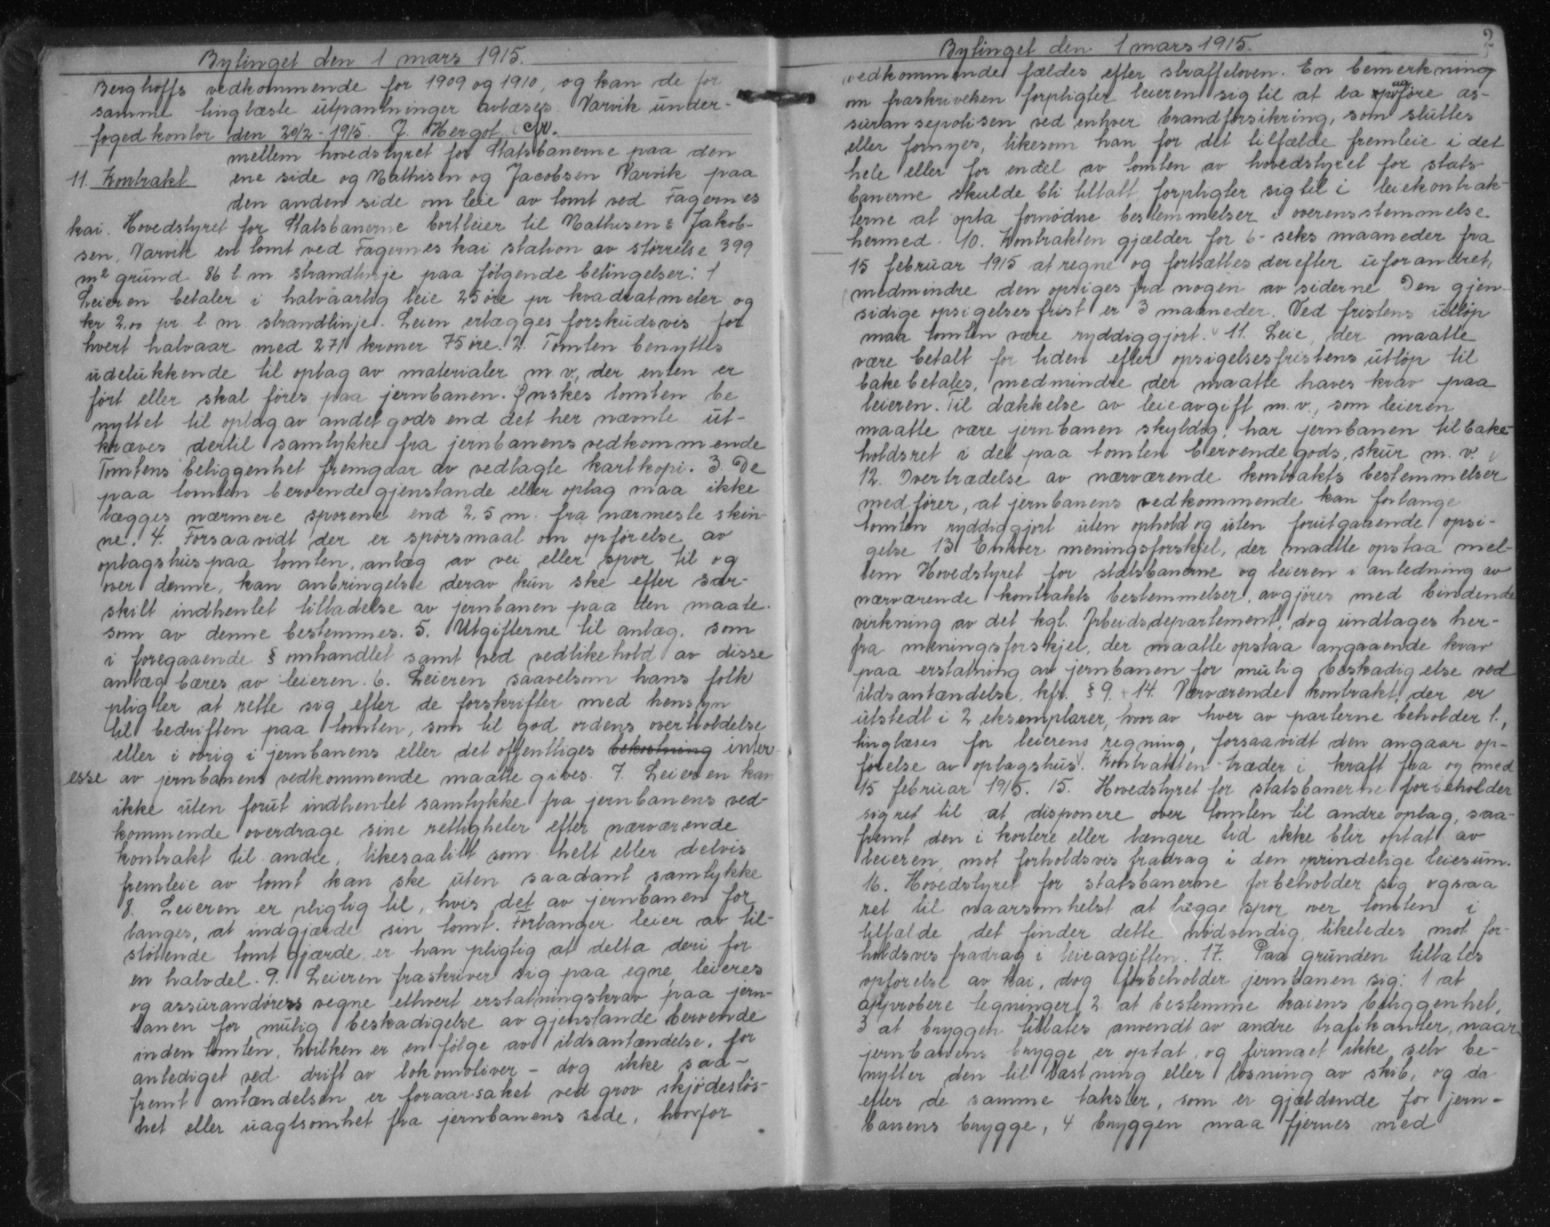 Bytinget den 1 mars 1915.
Berghoffs vedkommende for 1909 og 1910, og kan de for
samme tinglæste utpantninger avlæses. Narvik under-
foged kontor den 20/2 - 1915. J. Hergot
mellem hovedstyret for Statsbanerne paa den
11. Kontrakt ene side og Mathisen og Jacobsen Narvik paa
den anden side om leie av tomt ved Fagernes
kai. Hovedstyret for Statsbanerne bortleier til Mathisen & Jakob-
sen, Narvik en tomt ved Fagernes kai station av størrelse 399
m² grund 86 l m strandlinje paa følgende betingelser: 1
Leieren betaler i halvaarlig leie 25 øre pr kvadratmeter og
kr 2.00 pr. l m strandlinje. Leien erlægges forskudsvis for
hvert halvaar med 271 kroner 75 øre. 2. Tomten benyttes
udelukkende til oplag av materialer m v, der enten er
ført eller skal føres paa jernbanen. Ønskes tomten be
nyttet til oplag av andet gods end det her nævnte ut-
kræves dertil samtykke fra jernbanens vedkommende
Tomtens beliggenhet fremgaar av vedlagte kartkopi. 3. De
paa tomten beroende gjenstande eller oplag maa ikke
lægges nærmere sporene end 2,5 m. fra nærmeste skin-
ne. 4. Forsaavidt der er spørsmaal om opførelse av
oplagshus paa tomten, anlæg av vei eller spor til og
over denne, kan anbringelse derav kun ske efter sær-
skilt indhentet tilladelse av jernbanen paa den maate
som av denne bestemmes. 5. Utgifterne til anlæg, som
i foregaaende § omhandlet samt ved vedlikehold av disse
anlæg bæres av leieren. 6. Leieren saavelsom hans folk
pligter at rette sig efter de forskrifter med hensyn
til bedriften paa tomten, som til god ordens overholdelse
eller i øvrig i jernbanens eller det offentliges bekostning inter
esse av jernbanens vedkommende maatte gives. 7. Leieren kan
ikke uten forut indhentet samtykke fra jernbanens ved-
kommende overdrage sine rettigheter efter nærværende
kontrakt til andre, likesaalitt som helt eller delvis
fremleie av tomt kan ske uten saadant samtykke
8. Leieren er pligtig til, hvis det av jernbanen for
langes, at indgjærde sin tomt. Forlanger leier av til-
støtende tomt gjærde er han pligtig at delta deri for
en halvdel. 9. Leieren fraskriver sig paa egne, leieres
og assurandørers vegne ethvert erstatningskrav paa jern-
banen for mulig beskadigelse av gjenstande beroende
inden tomten, hvilken er en følge av ildsantændelse, for
anlediget ved drift av lokomotiver - dog ikke saa-
fremt antændelsen er foraarsaket ved grov skjødesløs-
het eller uagtsomhet fra jernbanens side, hvorfor
2
Bytinget den 1 mars 1915.
vedkommende fældes efter straffeloven. En bemerkning
om fraskrivelsen forpligter leieren sig til at la paaføre as-
suransepolisen ved enhver brandforsikring, som sluttes
eller fornyes, likesom han for det tilfælde fremleie i det
hele eller for endel av tomten av hovedstyret for stats
banerne skulde bli tillatt forpligter sig til i leiekontrak-
terne at opta fornødne bestemmelser i overensstemmelse
hermed. 10. Kontrakten gjælder for 6 - seks maaneder fra
15 februar 1915 at regne og fortsættes derefter uforandret,
medmindre den opsiges fra nogen av siderne Den gjen-
sidige opsigelsesfrist er 3 maaneder. Ved fristens utløp
maa tomten være ryddiggjort. 11. Leie, der maatte
være betalt for tiden efter opsigelsesfristens utløp til
bakebetales, medmindre der maatte haves krav paa
leieren. Til dækkelse av leieavgift m. v., som leieren
maatte være jernbanen skyldig, har jernbanen tilbake-
holdsret i det paa tomten beroende gods, skur m. v.
12. Overtrædelse av nærværende kontrakts bestemmelser
medfører, at jernbanens vedkommende kan forlange
tomten ryddiggjort uten ophold og uten forutgaaende opsi-
gelse 13 Enhver meningsforskjel, der maatte opstaa mel-
lem Hovedstyret for statsbanerne og leieren i anledning av
nærværende kontrakts bestemmelser, avgjøres med bindende
virkning av det kgl. Arbeidsdepartement, dog undtages her-
fra meningsforskjel, der maatte opstaa angaaende krav
paa erstatning av jernbanen for mulig beskadigelse ved
ildsantændelse, kfr. § 9. 14. Nærværende kontrakt, der er
utstedt i 2 eksemplarer, hvorav hver av parterne beholder 1,
tinglæses for leierens regning, forsaavidt den angaar op-
førelse av oplagshus. Kontrakten træder i kraft fra og med
15 februar 1915. 15. Hovedstyret for statsbanerne forbeholder
sig ret til at disponere over tomten til andre oplag, saa-
fremt den i kortere eller længere tid ikke blir optat av
leieren, mot forholdsvis fradrag i den oprindelige leiesum.
16. Hovedstyret for statsbanerne forbeholder sig ogsaa
ret til naarsomhelst at lægge spor over tomten i
tilfælde det finder dette nødvendig likeledes mot for-
holdsvis fradrag i leieavgiften. 17. Paa grunden tillates
opførelse av kai, dog forbeholder jernbanen sig: 1 at
approbere tegninger 2 at bestemme kaiens beliggenhet,
3 at bryggen tillates anvendt av andre trafikanter, naar
jernbanens brygge er optat, og firmaet ikke selv be-
nytter den til lastning eller losning av skib, og da
efter de samme takster, som er gjældende for jern-
banens brygge, 4 bryggen maa fjernes med